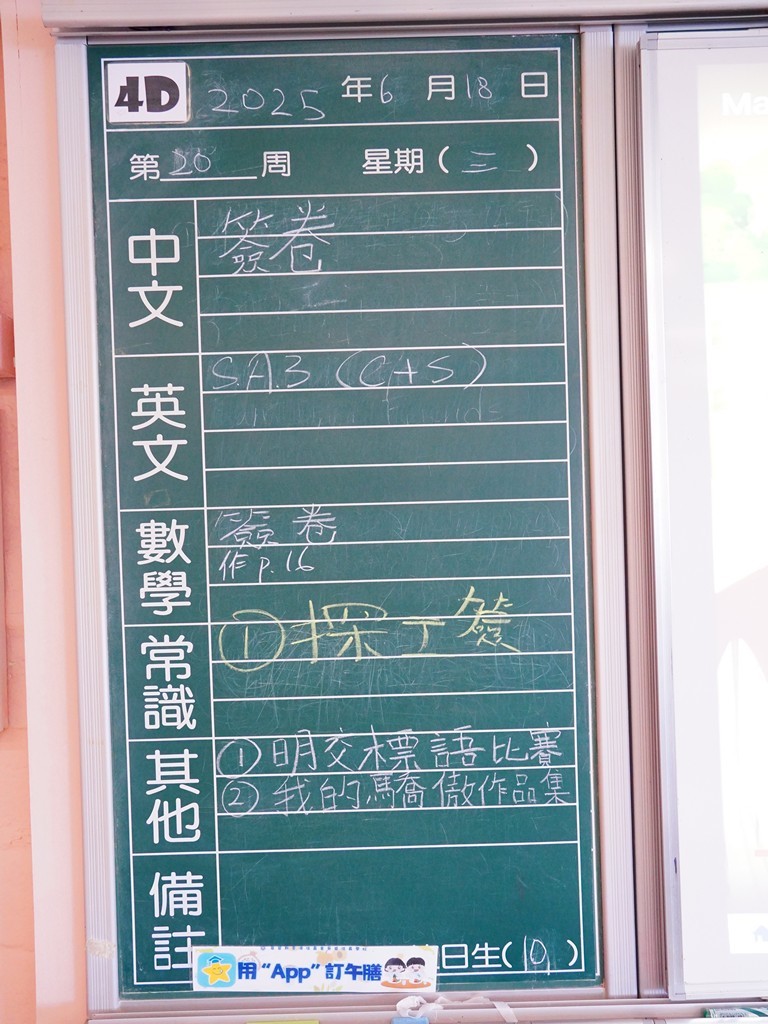 4D 2025年6月18日
第20周 星期(三)
中文
簽卷
英文
S.A.3 (C+S)
數學
簽卷
作p.16
常識
①探工簽
其他
①明交標語比賽
②我的驕傲作品集
備註
日生(10)
用“App”訂午膳
Ma